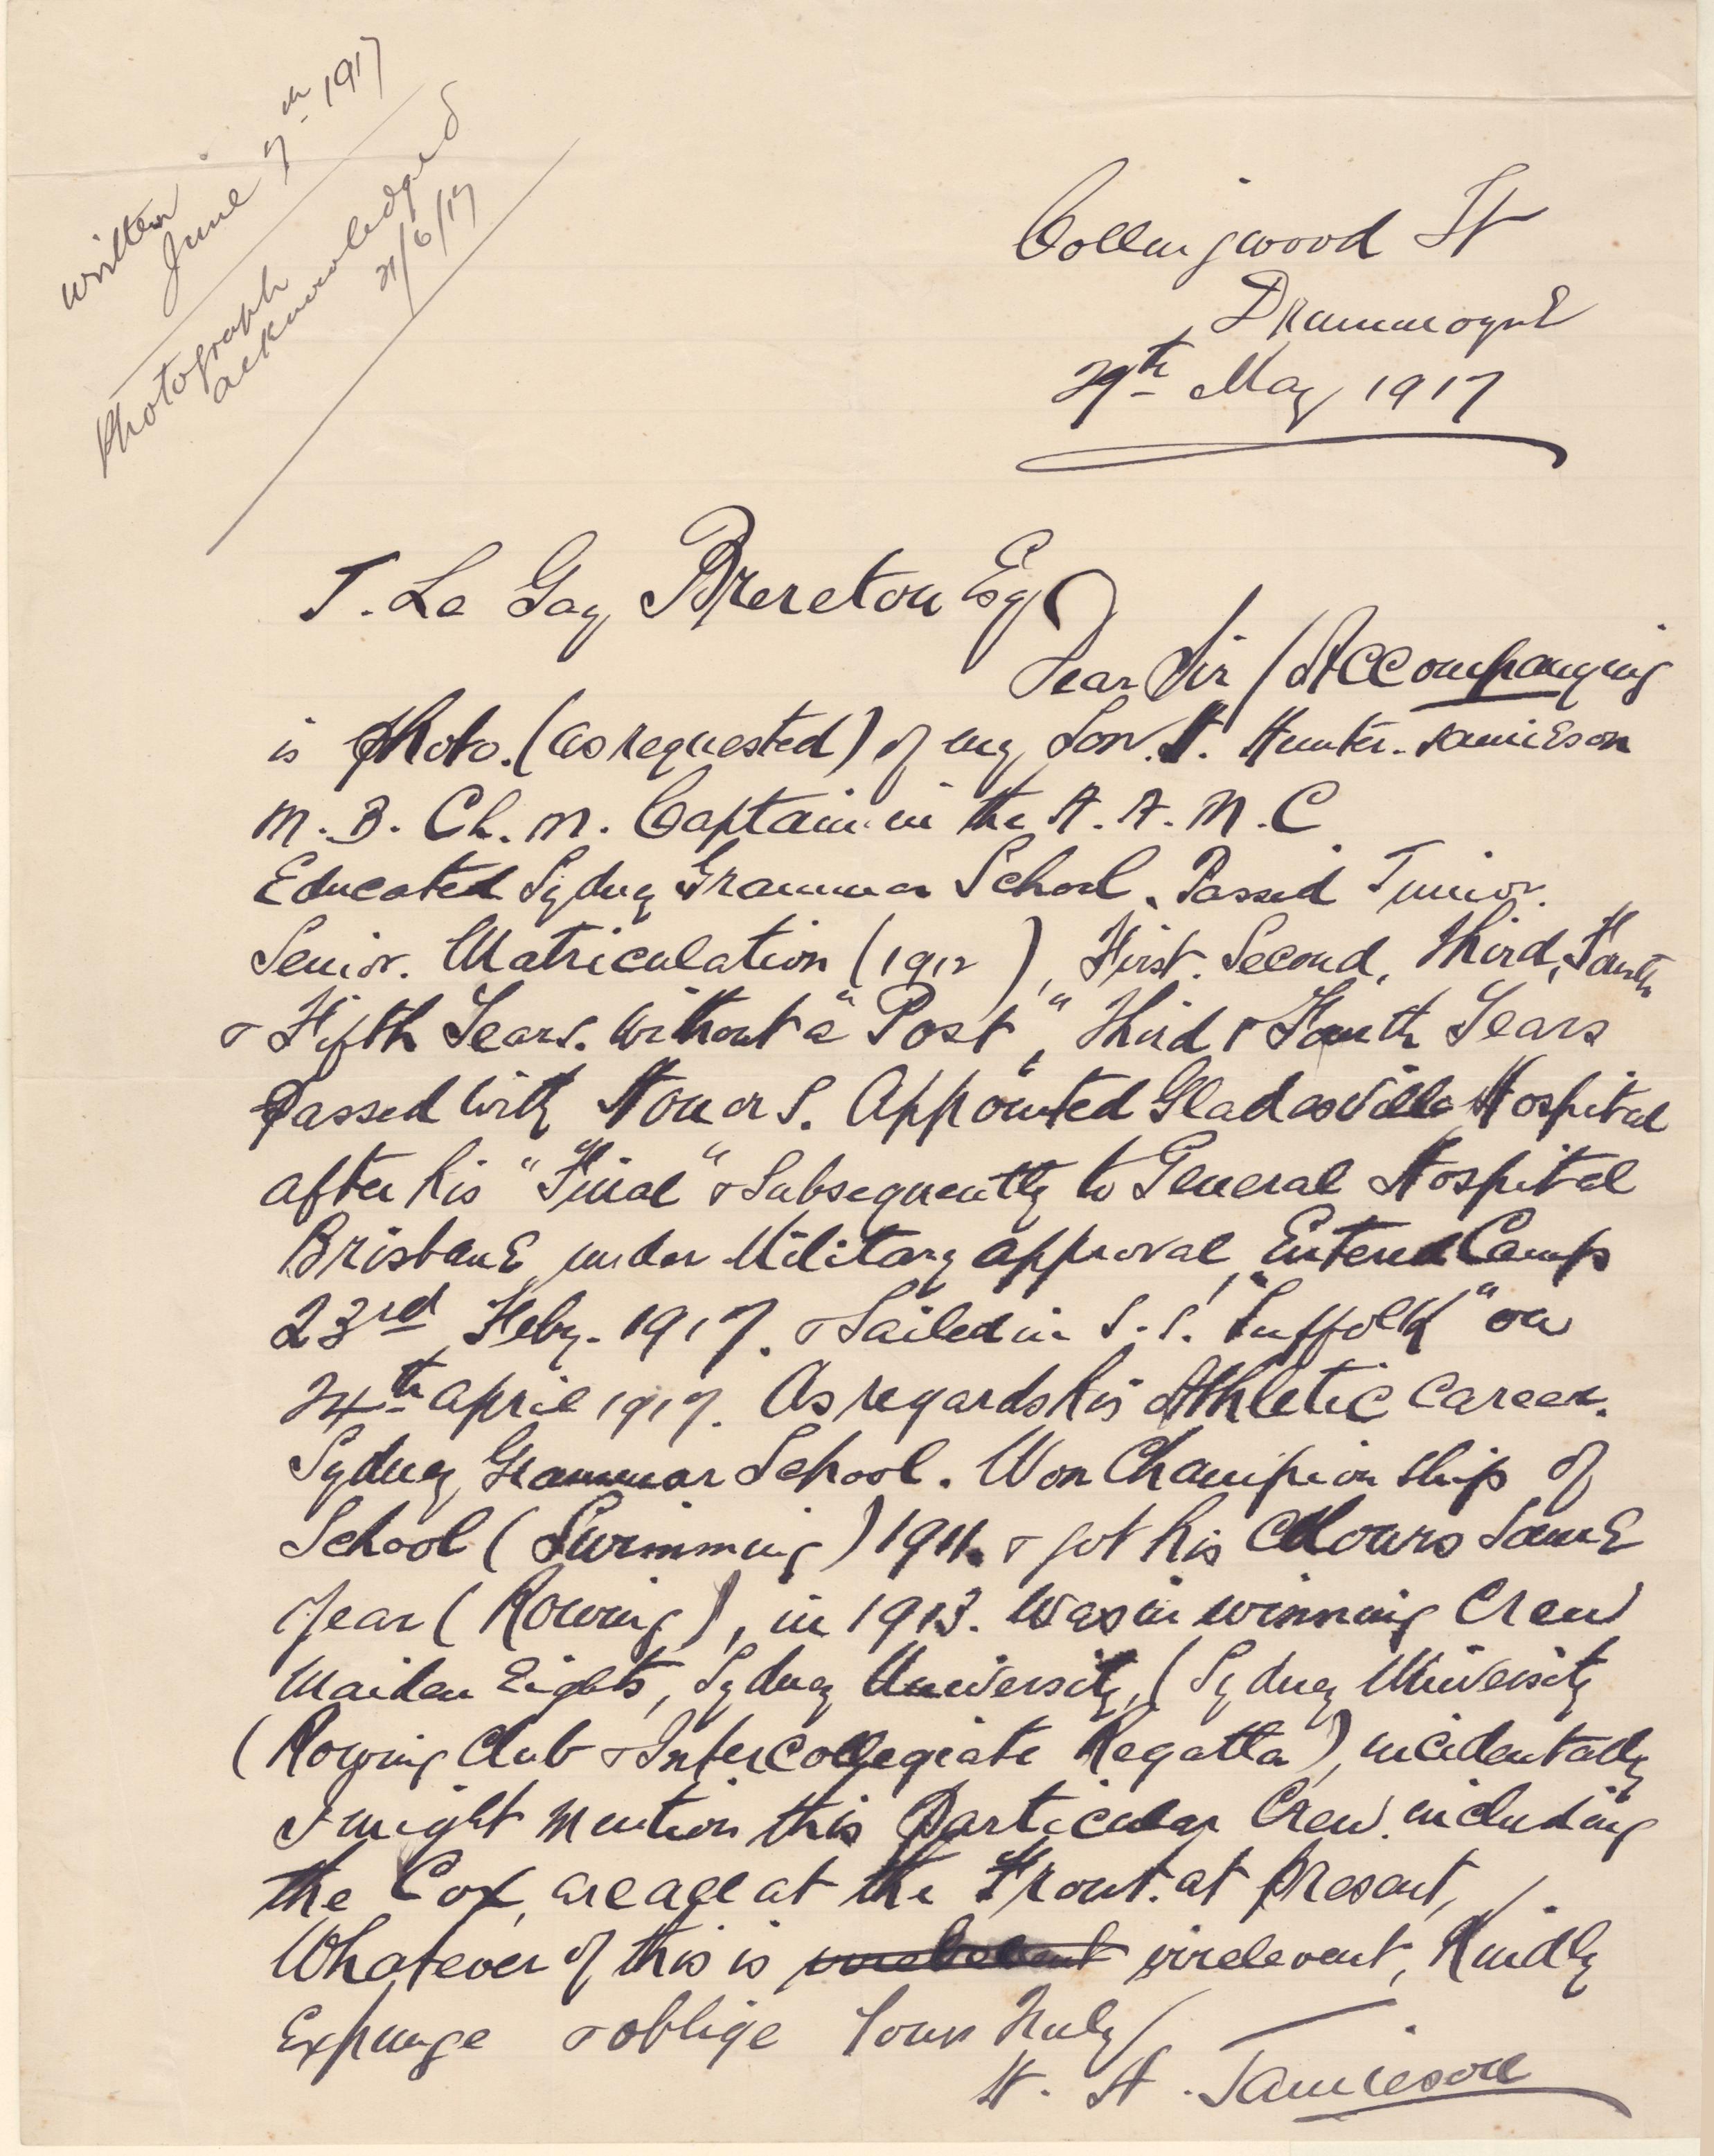 written
June 7th 1917
Photograph
acknowledged
21/6/17
Collingwood St
Drummoyne
29th May 1917
J. Le Gay Brereton Esq
Dear Sir / Accompanying
is Photo. (as requested) of my Son. Hunter. Jamieson
M. B. Ch. M. Captain in the A. A. M. C
Educated Sydney Grammar School. Passed Junior.
Senior. Matriculation (1912), First. Second, Third, Fourth
& Fifth Years. Without a "Post", Third & Fourth Years
Passed with Honors. Appointed Gladesville Hospital
after his "Final" & Subsequently to General Hospital
Brisbane, under Military approval, Entered Camp
23rd Feby. 1917. & Sailed in S.S. "Suffolk" on
24th April 1917. As regards his Athletic Career.
Sydney Grammar School. Won Championship of
School (Swimming) 1911. & got his Colours Same
year (Rowing), in 1913. Was in winning Crew
Maiden Eights, Sydney University, (Sydney University
(Rowing Club & Intercollegiate Regatta), incidentally
I might mention this Particular Crew. including
the Cox, are all at the Front. at present,
Whatever of this is irrelevant, Kindly
Expunge & oblige Yours Truly/
H. H. Jamieson